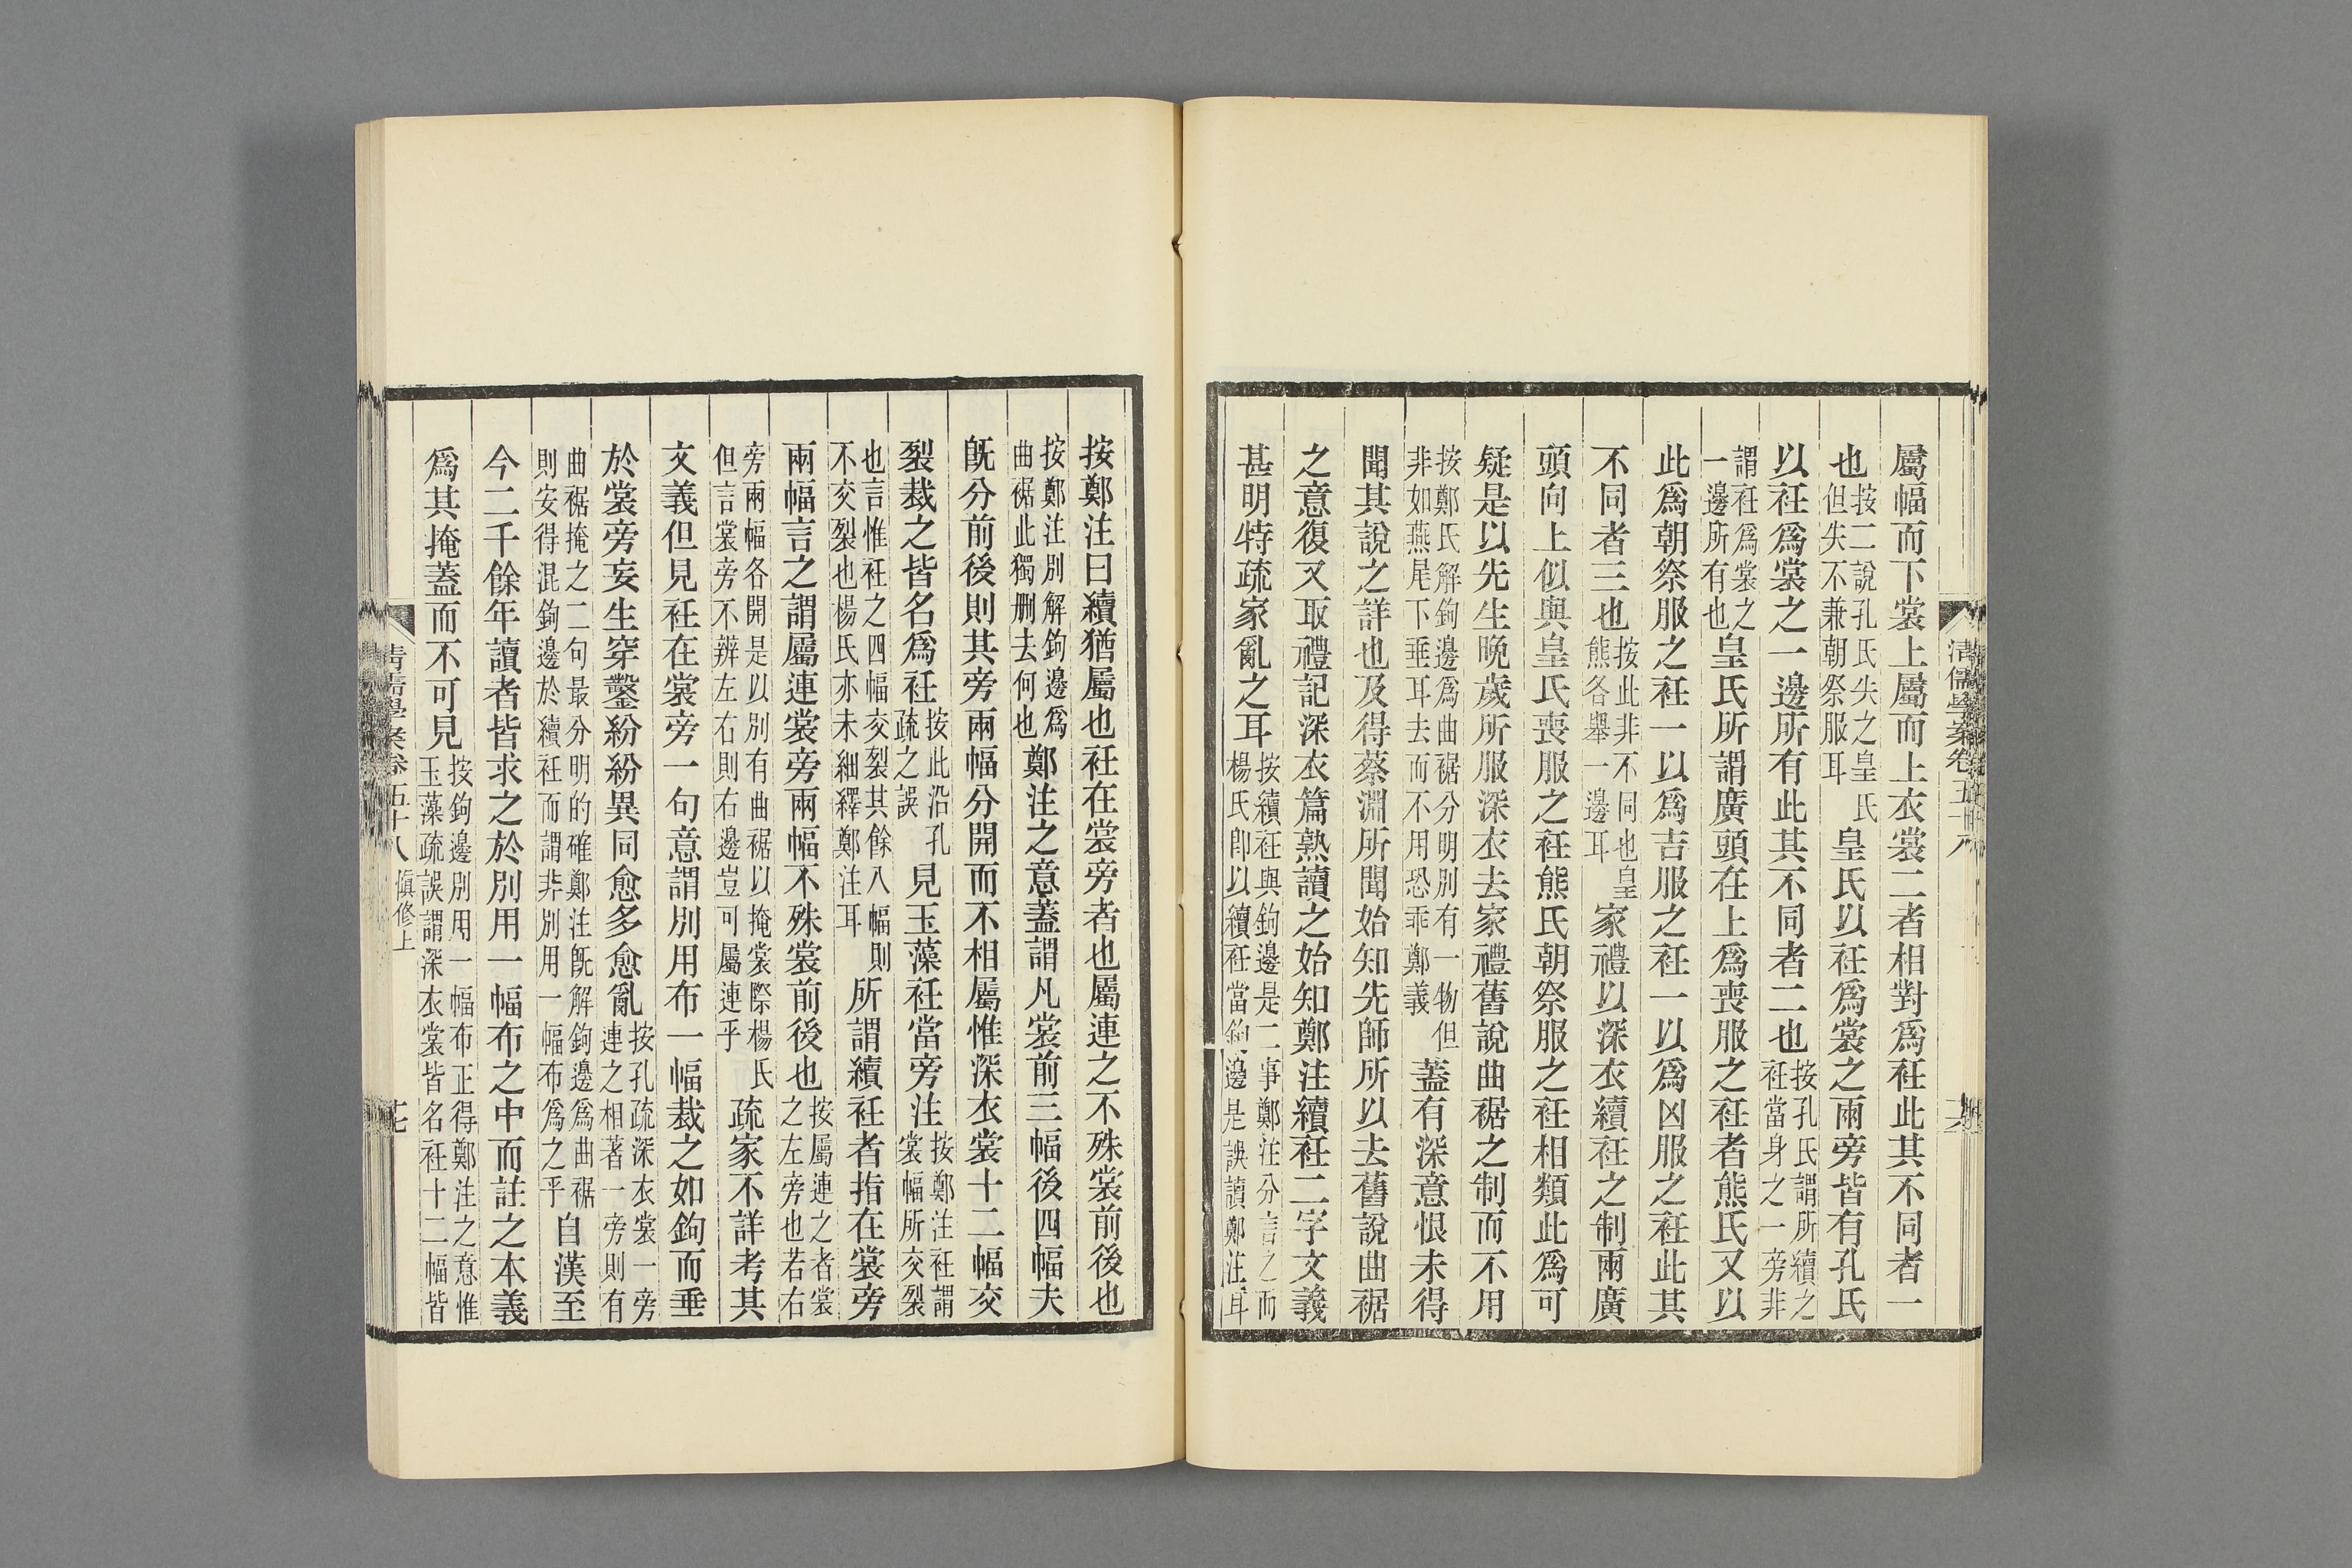 屬幅而下裳上屬而上衣裳二者相對爲衽此其不同者一
也按二說孔氏失之皇氏但失不兼朝祭服耳皇氏以衽爲裳之兩旁皆有孔氏
以衽爲裳之一邊所有此其不同者二也按孔氏謂所續之衽當身之一旁非
謂衽爲裳之一邊所有也皇氏所謂廣頭在上爲喪服之衽者熊氏又以
此爲朝祭服之衽一以爲吉服之衽一以爲凶服之衽此其
不同者三也按此非不同也皇熊各舉一邊耳家禮以深衣續衽之制兩廣
頭向上似與皇氏喪服之衽熊氏朝祭服之衽相類此爲可
疑是以先生晚歲所服深衣去家禮舊說曲裾之制而不用
按鄭氏解鉤邊爲曲裾分明別有一物但非如燕尾下垂耳去而不用恐乖鄭義蓋有深意恨未得
聞其說之詳也及得蔡淵所聞始知先師所以去舊說曲裾
之意復又取禮記深衣篇熟讀之始知鄭注續衽二字文義
甚明特疏家亂之耳按續衽與鉤邊是二事鄭注分言之而楊氏卽以續衽當鉤邊是誤讀鄭注耳
清儒學案卷五十八
按鄭注曰續猶屬也衽在裳旁者也屬連之不殊裳前後也
按鄭注別解鉤邊爲曲裾此獨刪去何也鄭注之意蓋謂凡裳前三幅後四幅夫
旣分前後則其旁兩幅分開而不相屬惟深衣裳十二幅交
裂裁之皆名爲衽按此沿孔疏之誤見玉藻衽當旁注按鄭注衽謂裳幅所交裂
也言惟衽之四幅交裂其餘八幅則不交裂也楊氏亦未細繹鄭注耳所謂續衽者指在裳旁
兩幅言之謂屬連裳旁兩幅不殊裳前後也按屬連之者裳之左旁也若右
旁兩幅各開是以別有曲裾以掩裳際楊氏但言裳旁不辨左右則右邊豈可屬連乎疏家不詳考其
文義但見衽在裳旁一句意謂別用布一幅裁之如鉤而垂
於裳旁妄生穿鑿紛紛異同愈多愈亂按孔疏深衣裳一旁連之相著一旁則有
曲裾掩之二句最分明的確鄭注旣解鉤邊爲曲裾則安得混鉤邊於續衽而謂非別用一幅布爲之乎自漢至
今二千餘年讀者皆求之於別用一幅布之中而註之本義
爲其掩蓋而不可見按鉤邊別用一幅布正得鄭注之意惟玉藻疏誤謂深衣裳皆名衽十二幅皆
清儒學案卷五十八 愼修上 十七